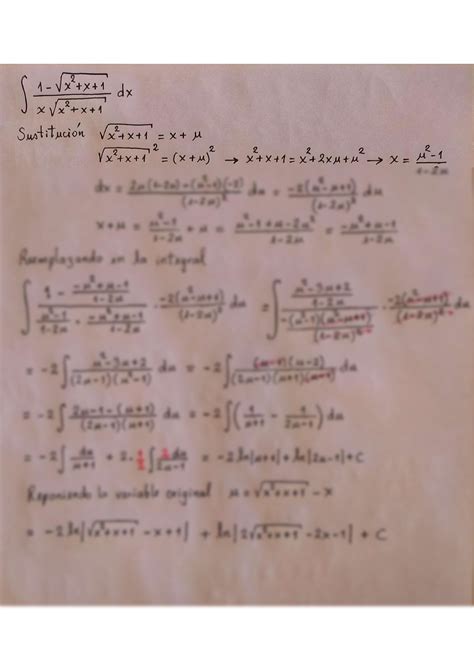 ∫ (1-√(x²+x+1))/(x√(x²+x+1)) dx
Sustitución √(x²+x+1) = x+μ
√(x²+x+1)² = (x+μ)² → x²+x+1 = x²+2xμ+μ² → x = (μ²-1)/(1-2μ)
dx = (2μ(1-2μ)-(μ²-1)(-2))/(1-2μ)² dμ = (-2(μ²-μ+1))/(1-2μ)² dμ
x+μ = (μ²-1)/(1-2μ) + μ = (μ²-1+μ-2μ²)/(1-2μ) = (-μ²+μ-1)/(1-2μ)
Reemplazando en la integral
= -2∫ (μ²-3μ+2)/((2μ-1)(μ²-1)) dμ = -2∫ ((μ-1)(μ-2))/((2μ-1)(μ+1)(μ-1)) dμ
= -2∫ (2μ-1-(μ+1))/((2μ-1)(μ+1)) dμ = -2∫ (1/(μ+1) - 1/(2μ-1)) dμ
= -2∫ dμ/(μ+1) + 2·1/2 ∫ 2dμ/(2μ-1) = -2ln|μ+1|+ln|2μ-1|+C
Reponiendo la variable original μ=√(x²+x+1) -x
= -2 ln|√(x²+x+1) -x+1| + ln|2√(x²+x+1) -2x-1| + C